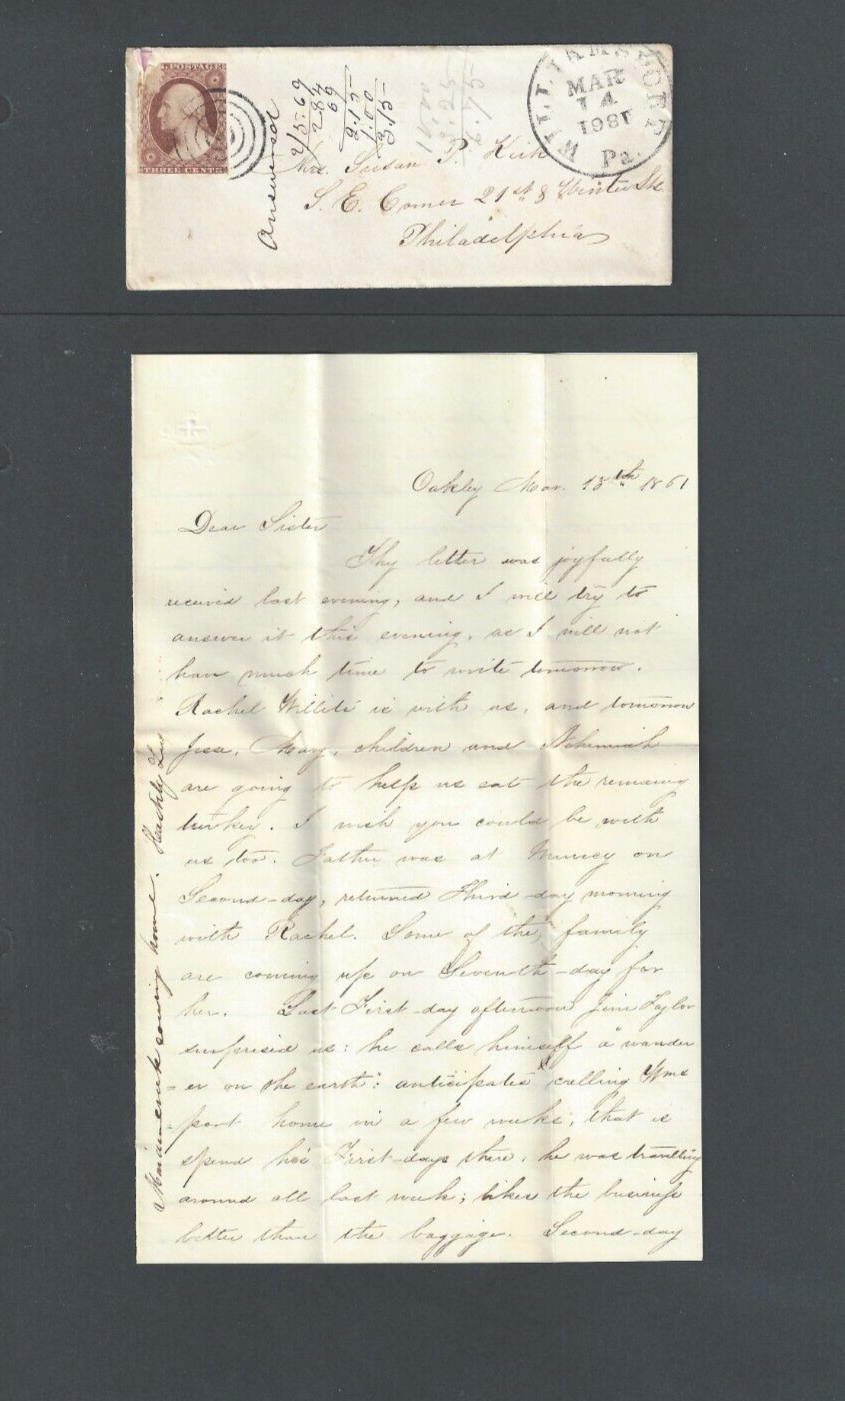 U.S. POSTAGE
THREE CENTS
WILLIAMSPORT
MAR
14
1861
Pa.
Answered
2/5.69
287
69
2.15
1.00
3.15
Mrs. Susan P. Kirk
S. E. Corner 21st & Winter Sts
Philadelphia
Oakley Mar. 13th 1861
Dear Sister
Thy letter was joyfully
received last evening, and I will try to
answer it this evening, as I will not
have much time to write tomorrow.
Rachel Willits is with us, and tomorrow
Jesse, Mary, children and Nehemiah
are going to help us eat the remaing
turkey. I wish you could be with
us too. Father was at Muncy on
Second-day, returned Third-day morning
with Rachel. Some of the family
are coming up on Seventh-day for
her. Last First-day afternoon Jim Taylor
surprised us: he calls himself a "wander
=er on the earth": anticipates calling Wms
=port home in a few weeks, that is
spend his First-days there, he was travelling
around all last week; likes the business
better than the baggage. Second-day
coming home.